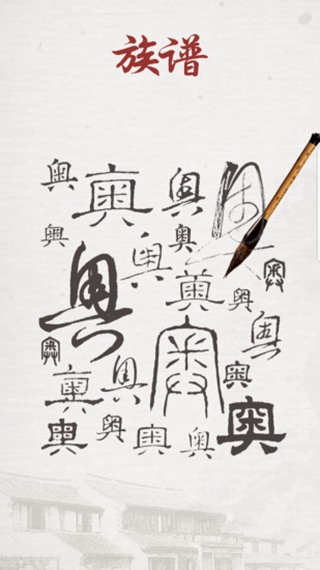 族谱
奥 奥 奥 奥
奥 奥 奥 奥
奥 奥 奥
奥 奥 奥
奥 奥 奥 奥
奥 奥 奥 奥 奥